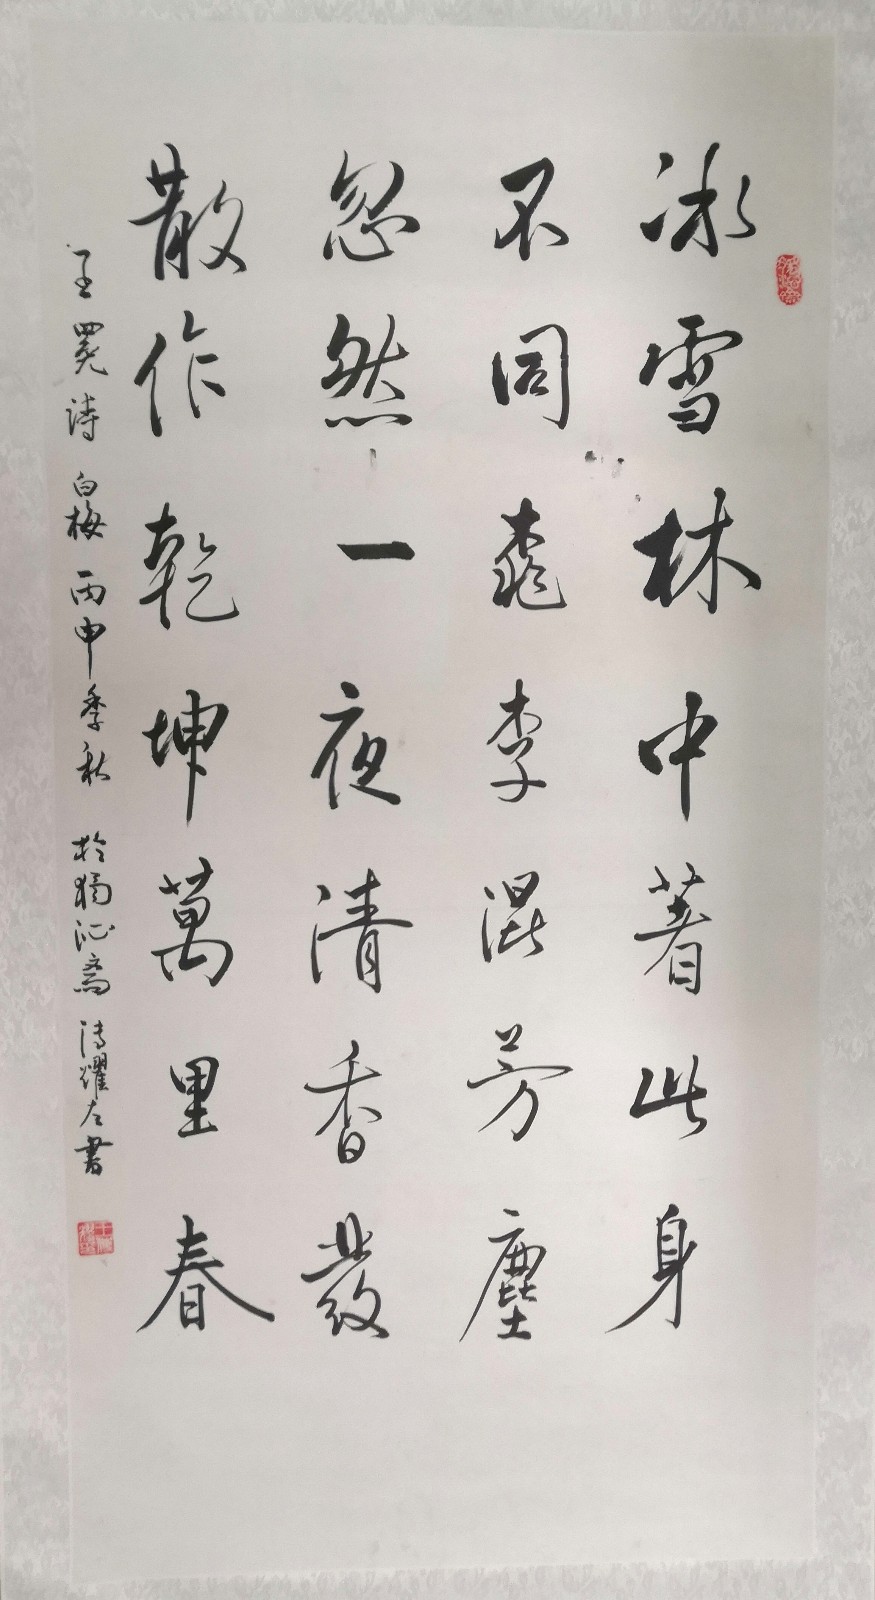 冰雪林中著此身
不同桃李混芳塵
忽然一夜清香發
散作乾坤萬里春
王冕詩 白梅 丙申季秋 於獨沁齋 耀左書